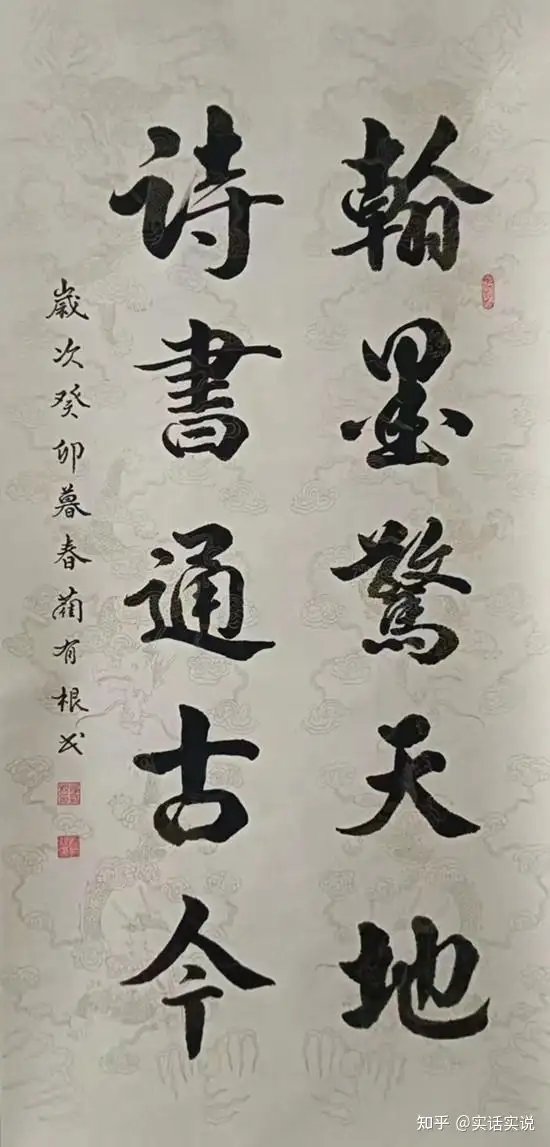 翰墨驚天地
詩書通古今
歲次癸卯暮春蔺有根书
知乎 @实话实说